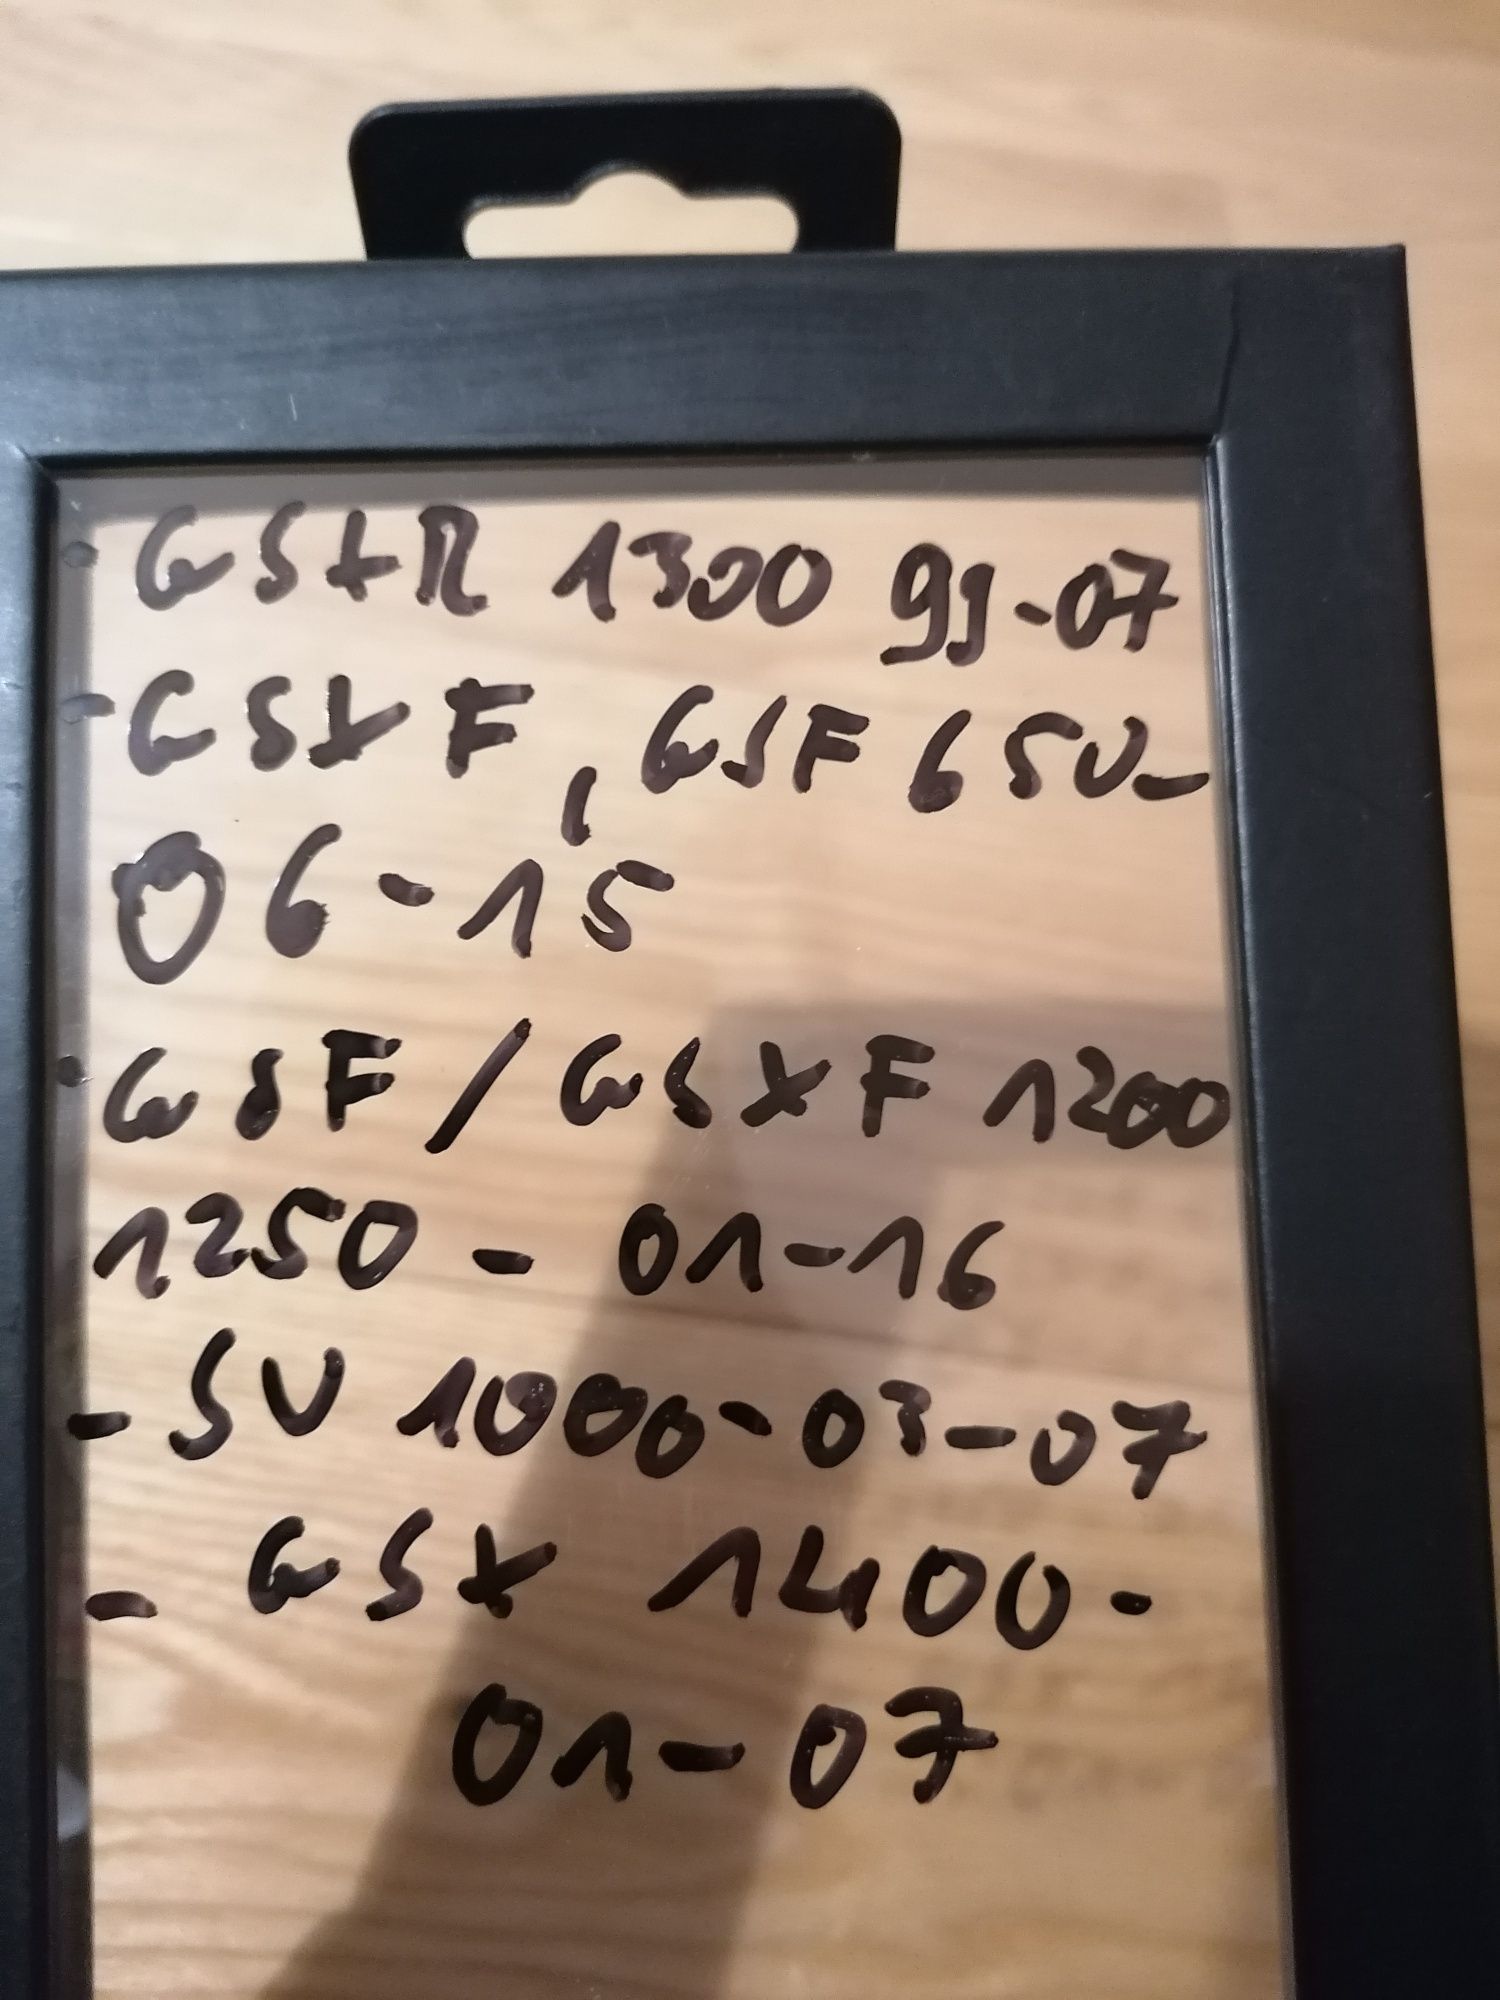 - GSXR 1300 99-07
- GSXF, GSF 650-
06-15
- GSF / GSXF 1200
1250 - 01-16
- SV 1000-03-07
- GSX 1400-
01-07